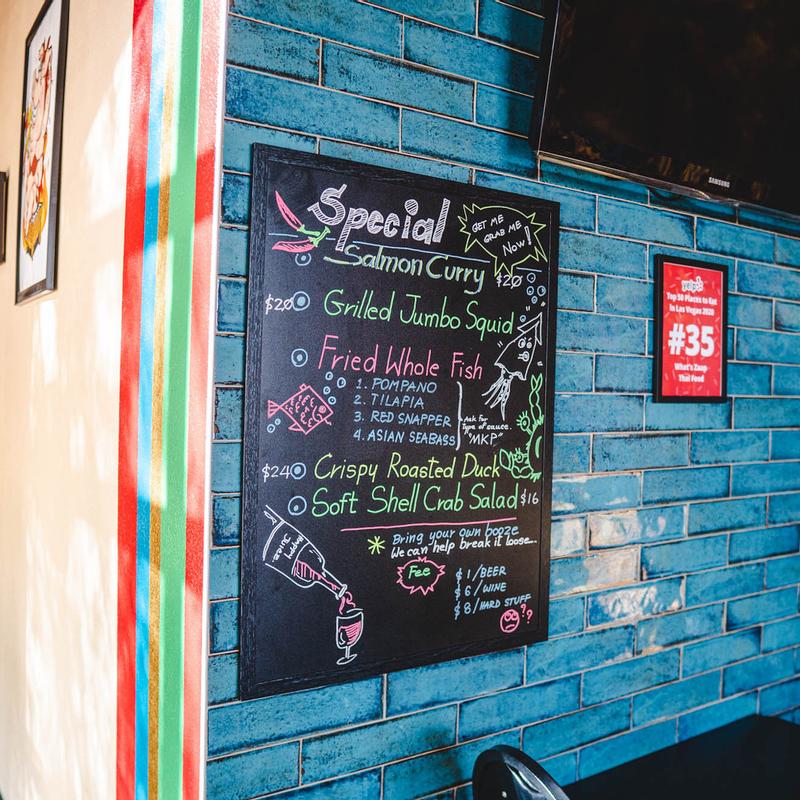 Special
GET ME
GRAB ME
NOW!
Salmon Curry
$20
$20 Grilled Jumbo Squid
Fried Whole Fish
1. POMPANO
2. TILAPIA
3. RED SNAPPER
4. ASIAN SEABASS
Ask For
Type of sauce.
"MKP"
$24 Crispy Roasted Duck
Soft Shell Crab Salad $16
Bring your own booze
We can help break it loose...
Fee
$1/BEER
$6/WINE
$8/HARD STUFF
??
Happy
Juice
SAMSUNG
yelp
Top 50 Places to Eat
in Las Vegas 2020
#35
What's Zaap
Thai Food